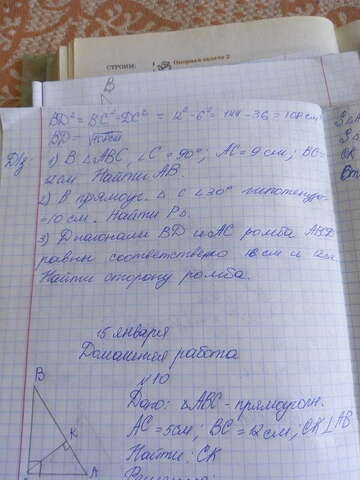 СТРОИМ:
Опорная задача 2
B
BD² = BC² - DC² = 12² - 6² = 144 - 36 = 108 см
BD =
D/з: 1) В △ABC, ∠C = 90°; AC = 9 см; BC =
12 см. Найти AB.
2) В прямоуг. △ с ∠30° гипотенуза
= 10 см. Найти P△.
3) Диагонали BD и AC ромба ABCD
равны соответственно и
Найти сторону ромба.
15 января
Домашняя работа
№10
Дано: △ABC - прямоугольн.
AC = 5 см; BC = 12 см, CK ⊥ AB
Найти: CK
Решение:
B
K
A